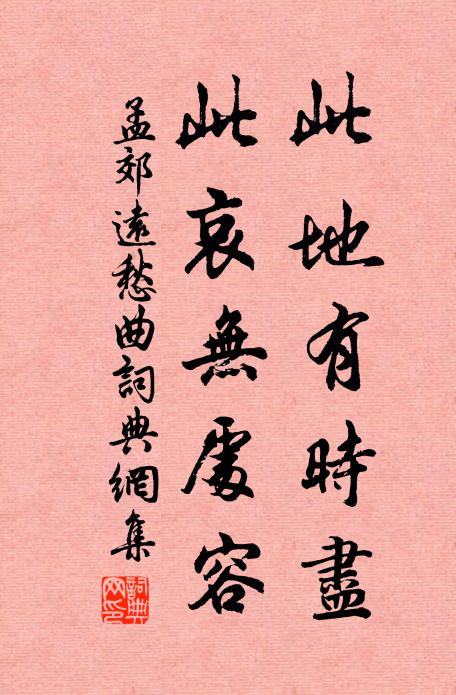 此地有時盡
此哀無處容
孟郊遠愁曲詞典網集
詞典網印